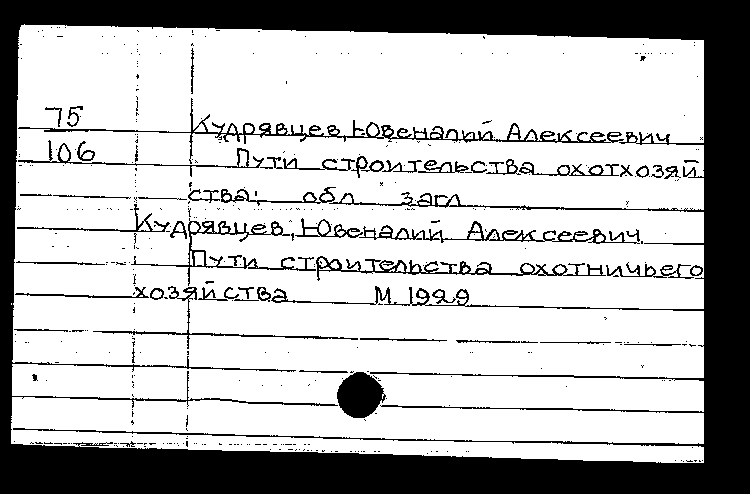 75
106
Кудрявцев, Ювеналий Алексеевич
Пути строительства охотхозяй
ства; обл загл
Кудрявцев, Ювеналий Алексеевич
Пути строительства охотничьего
хозяйства М. 1929